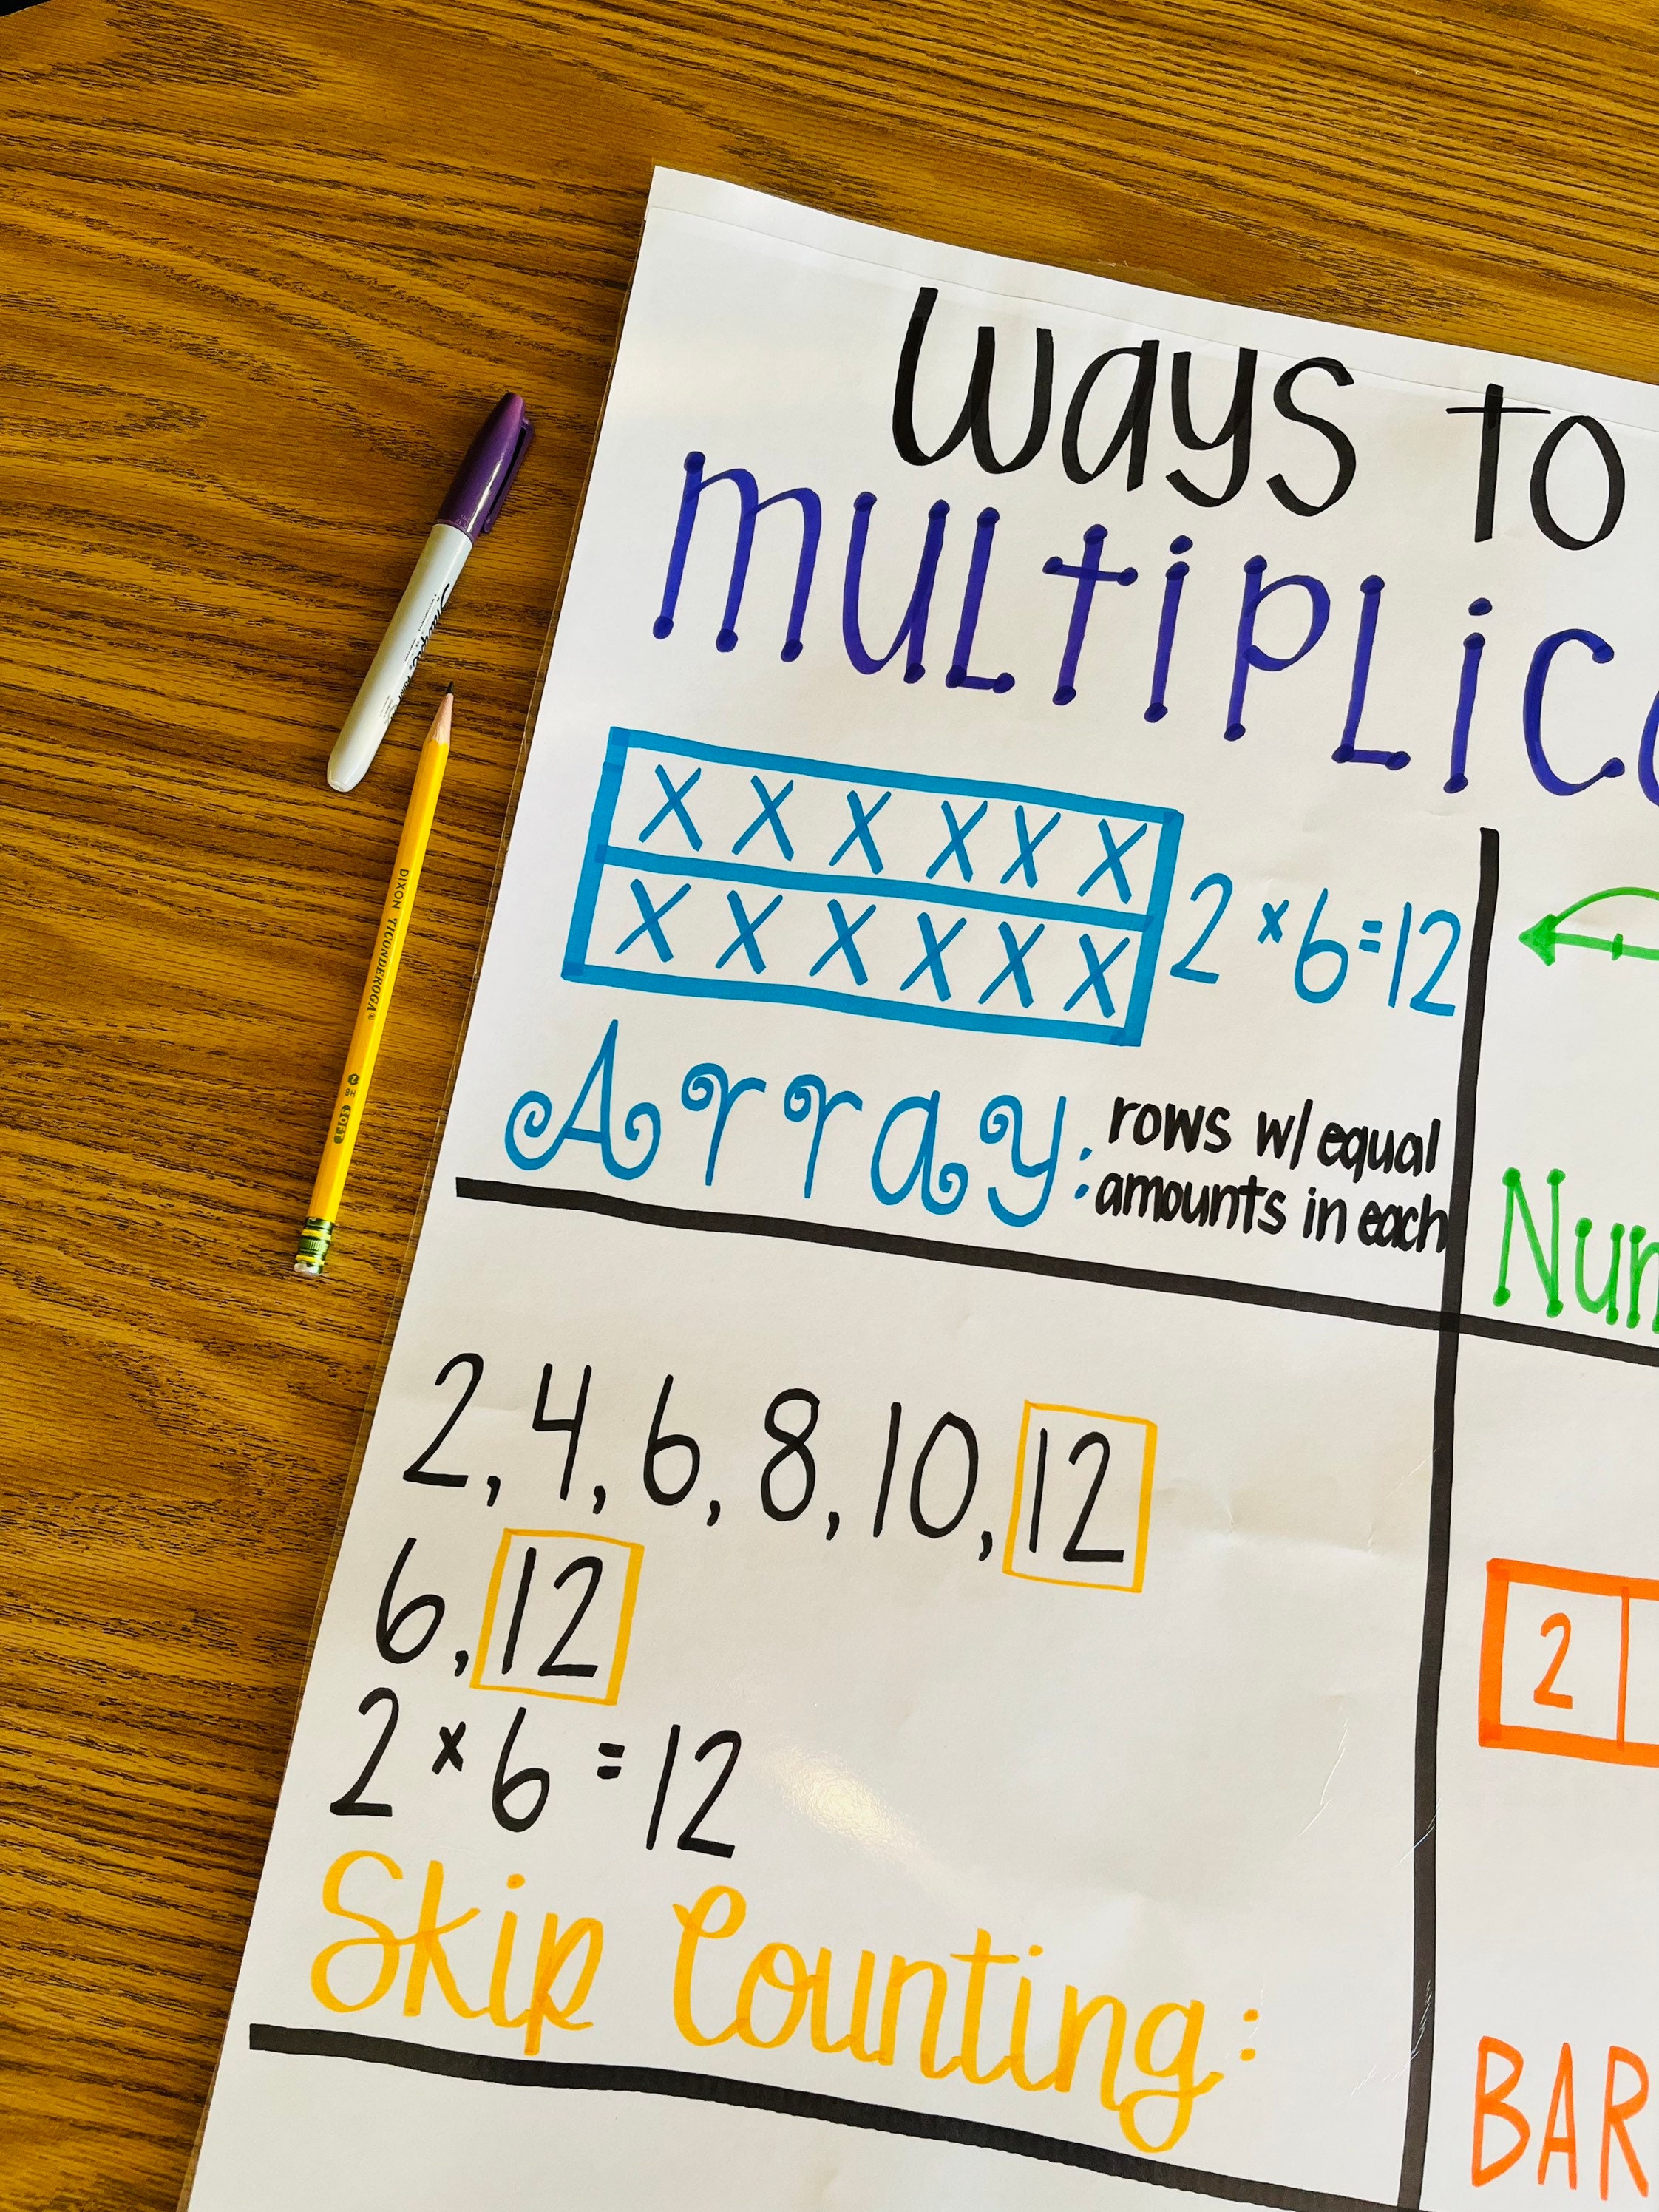 Ways to
multiplic
X X X X X X
X X X X X X
2 × 6 = 12
Array: rows w/ equal
amounts in each
Num
2, 4, 6, 8, 10, 12
6, 12
2 × 6 = 12
Skip Counting:
2
BAR
Sharpie
DIXON TICONDEROGA®
2 HB SOFT